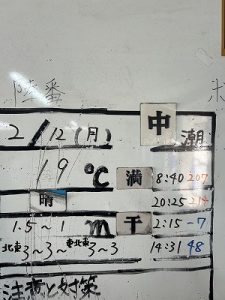 陸番 米
2/12(月) 中潮
19℃ 満 8:40 207
晴 20:25 214
1.5~1m 干 2:15 -7
北東3~3~東北東3~3 14:31 48
注意と対策